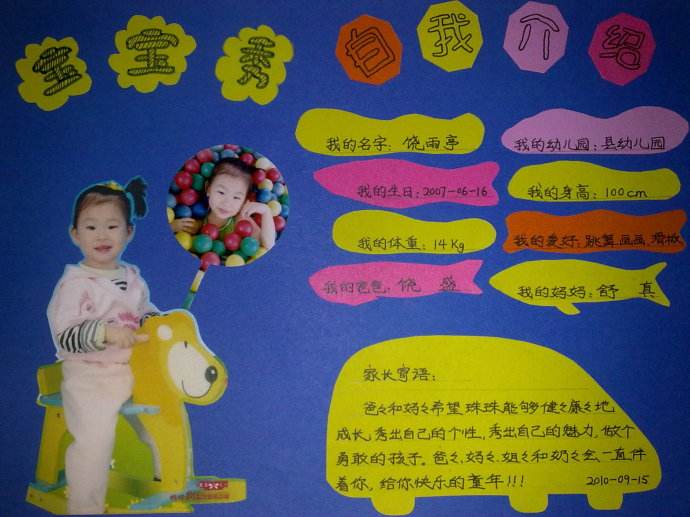 宝宝秀 自我介绍
我的名字：饶雨亭
我的幼儿园：县幼儿园
我的生日：2007-06-16
我的身高：100cm
我的体重：14Kg
我的爱好：跳舞 画画 滑板
我的爸爸：饶 盛
我的妈妈：舒 真
家长寄语：
爸々和妈々希望珠珠能够健々康々地
成长,秀出自己的个性,秀出自己的魅力,做个
勇敢的孩子。爸々、妈々、姐々和奶々会一直伴
着你,给你快乐的童年!!!
2010-09-15